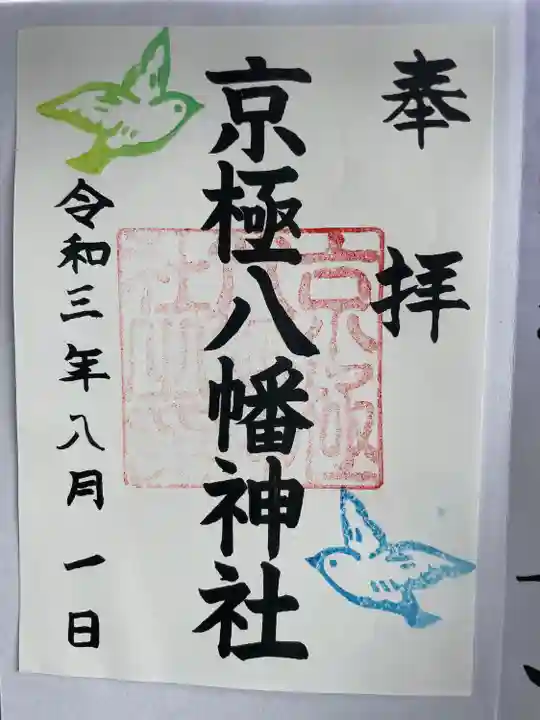 奉拝
京極八幡神社
令和三年八月一日
京極